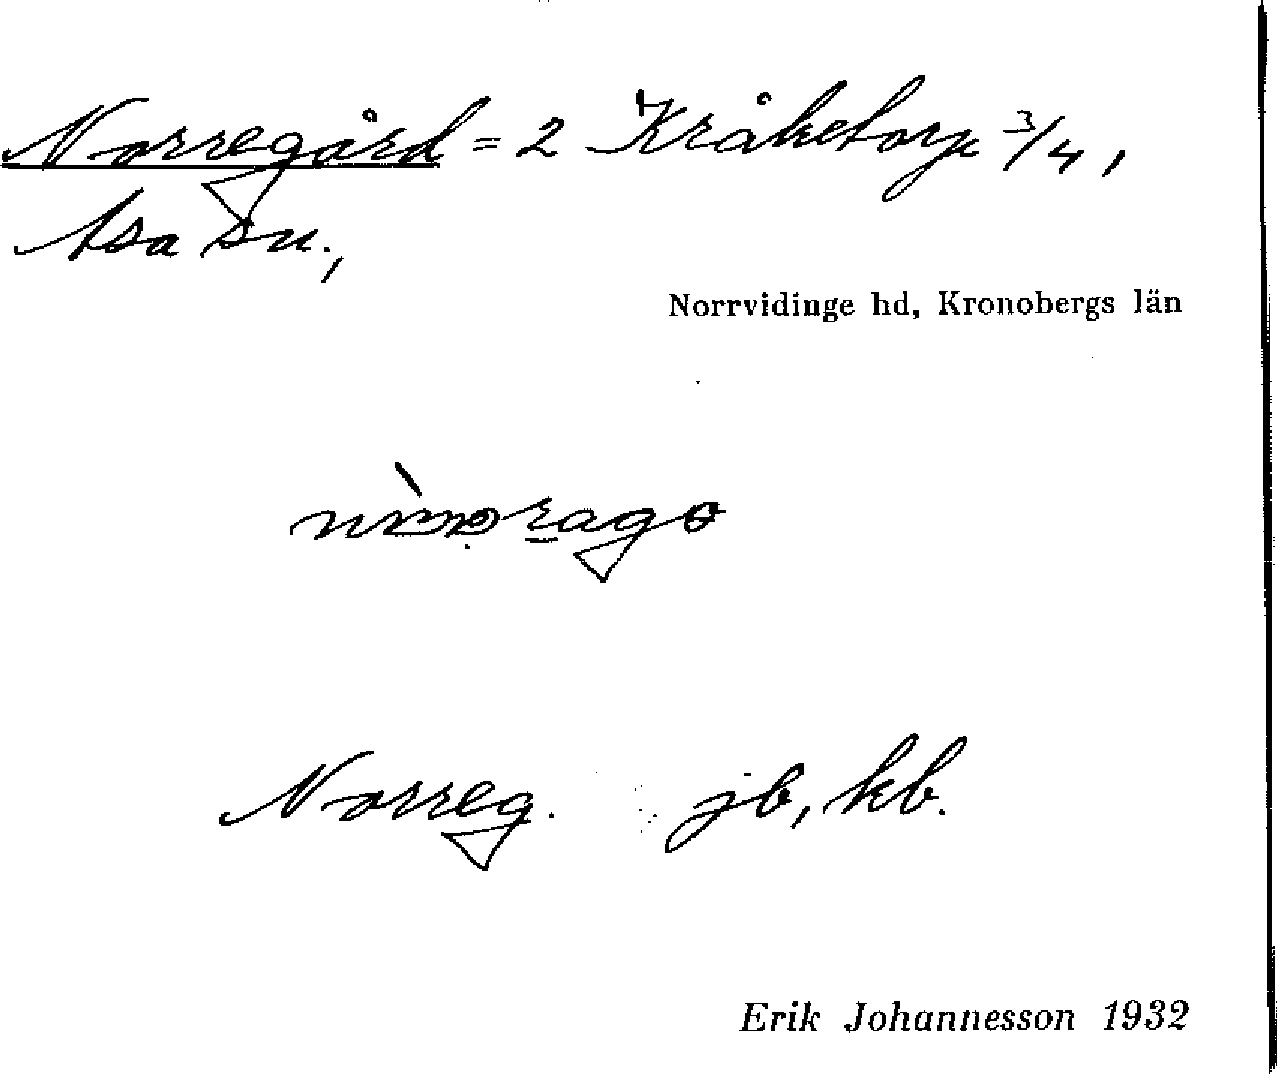 Norregård = 2 Kråketorp 3/4,
Asa sn.,
Norrvidinge hd, Kronobergs län
Norreg. jb, kb.
Erik Johannesson 1932